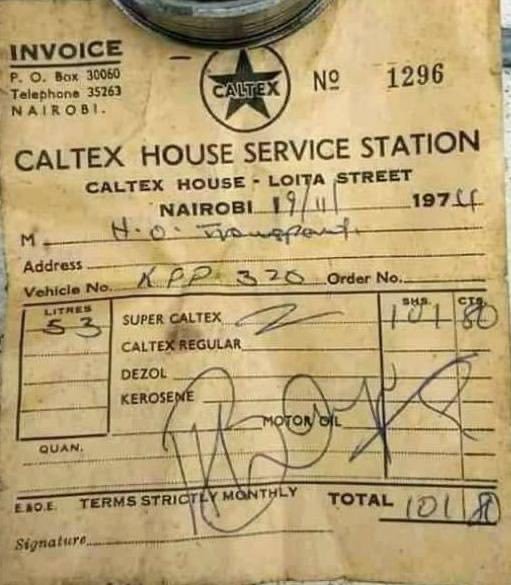 INVOICE
P. O. Box 30060
Telephone 35263
NAIROBI.
CALTEX
No 1296
CALTEX HOUSE SERVICE STATION
CALTEX HOUSE - LOITA STREET
NAIROBI 19/11 1974
M H.O. Transport.
Address
Vehicle No. KPP 320 Order No.
LITRES SHS. CTS.
53 SUPER CALTEX 101 80
CALTEX REGULAR
DEZOL
KEROSENE
MOTOR OIL
QUAN.
E.&O.E. TERMS STRICTLY MONTHLY TOTAL 101 80
Signature